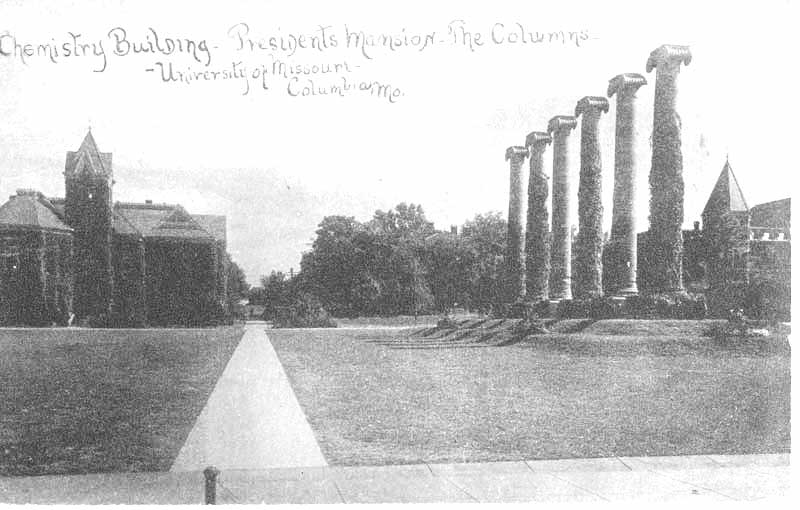 Chemistry Building - Presidents Mansion - The Columns -
- University of Missouri -
Columbia Mo.